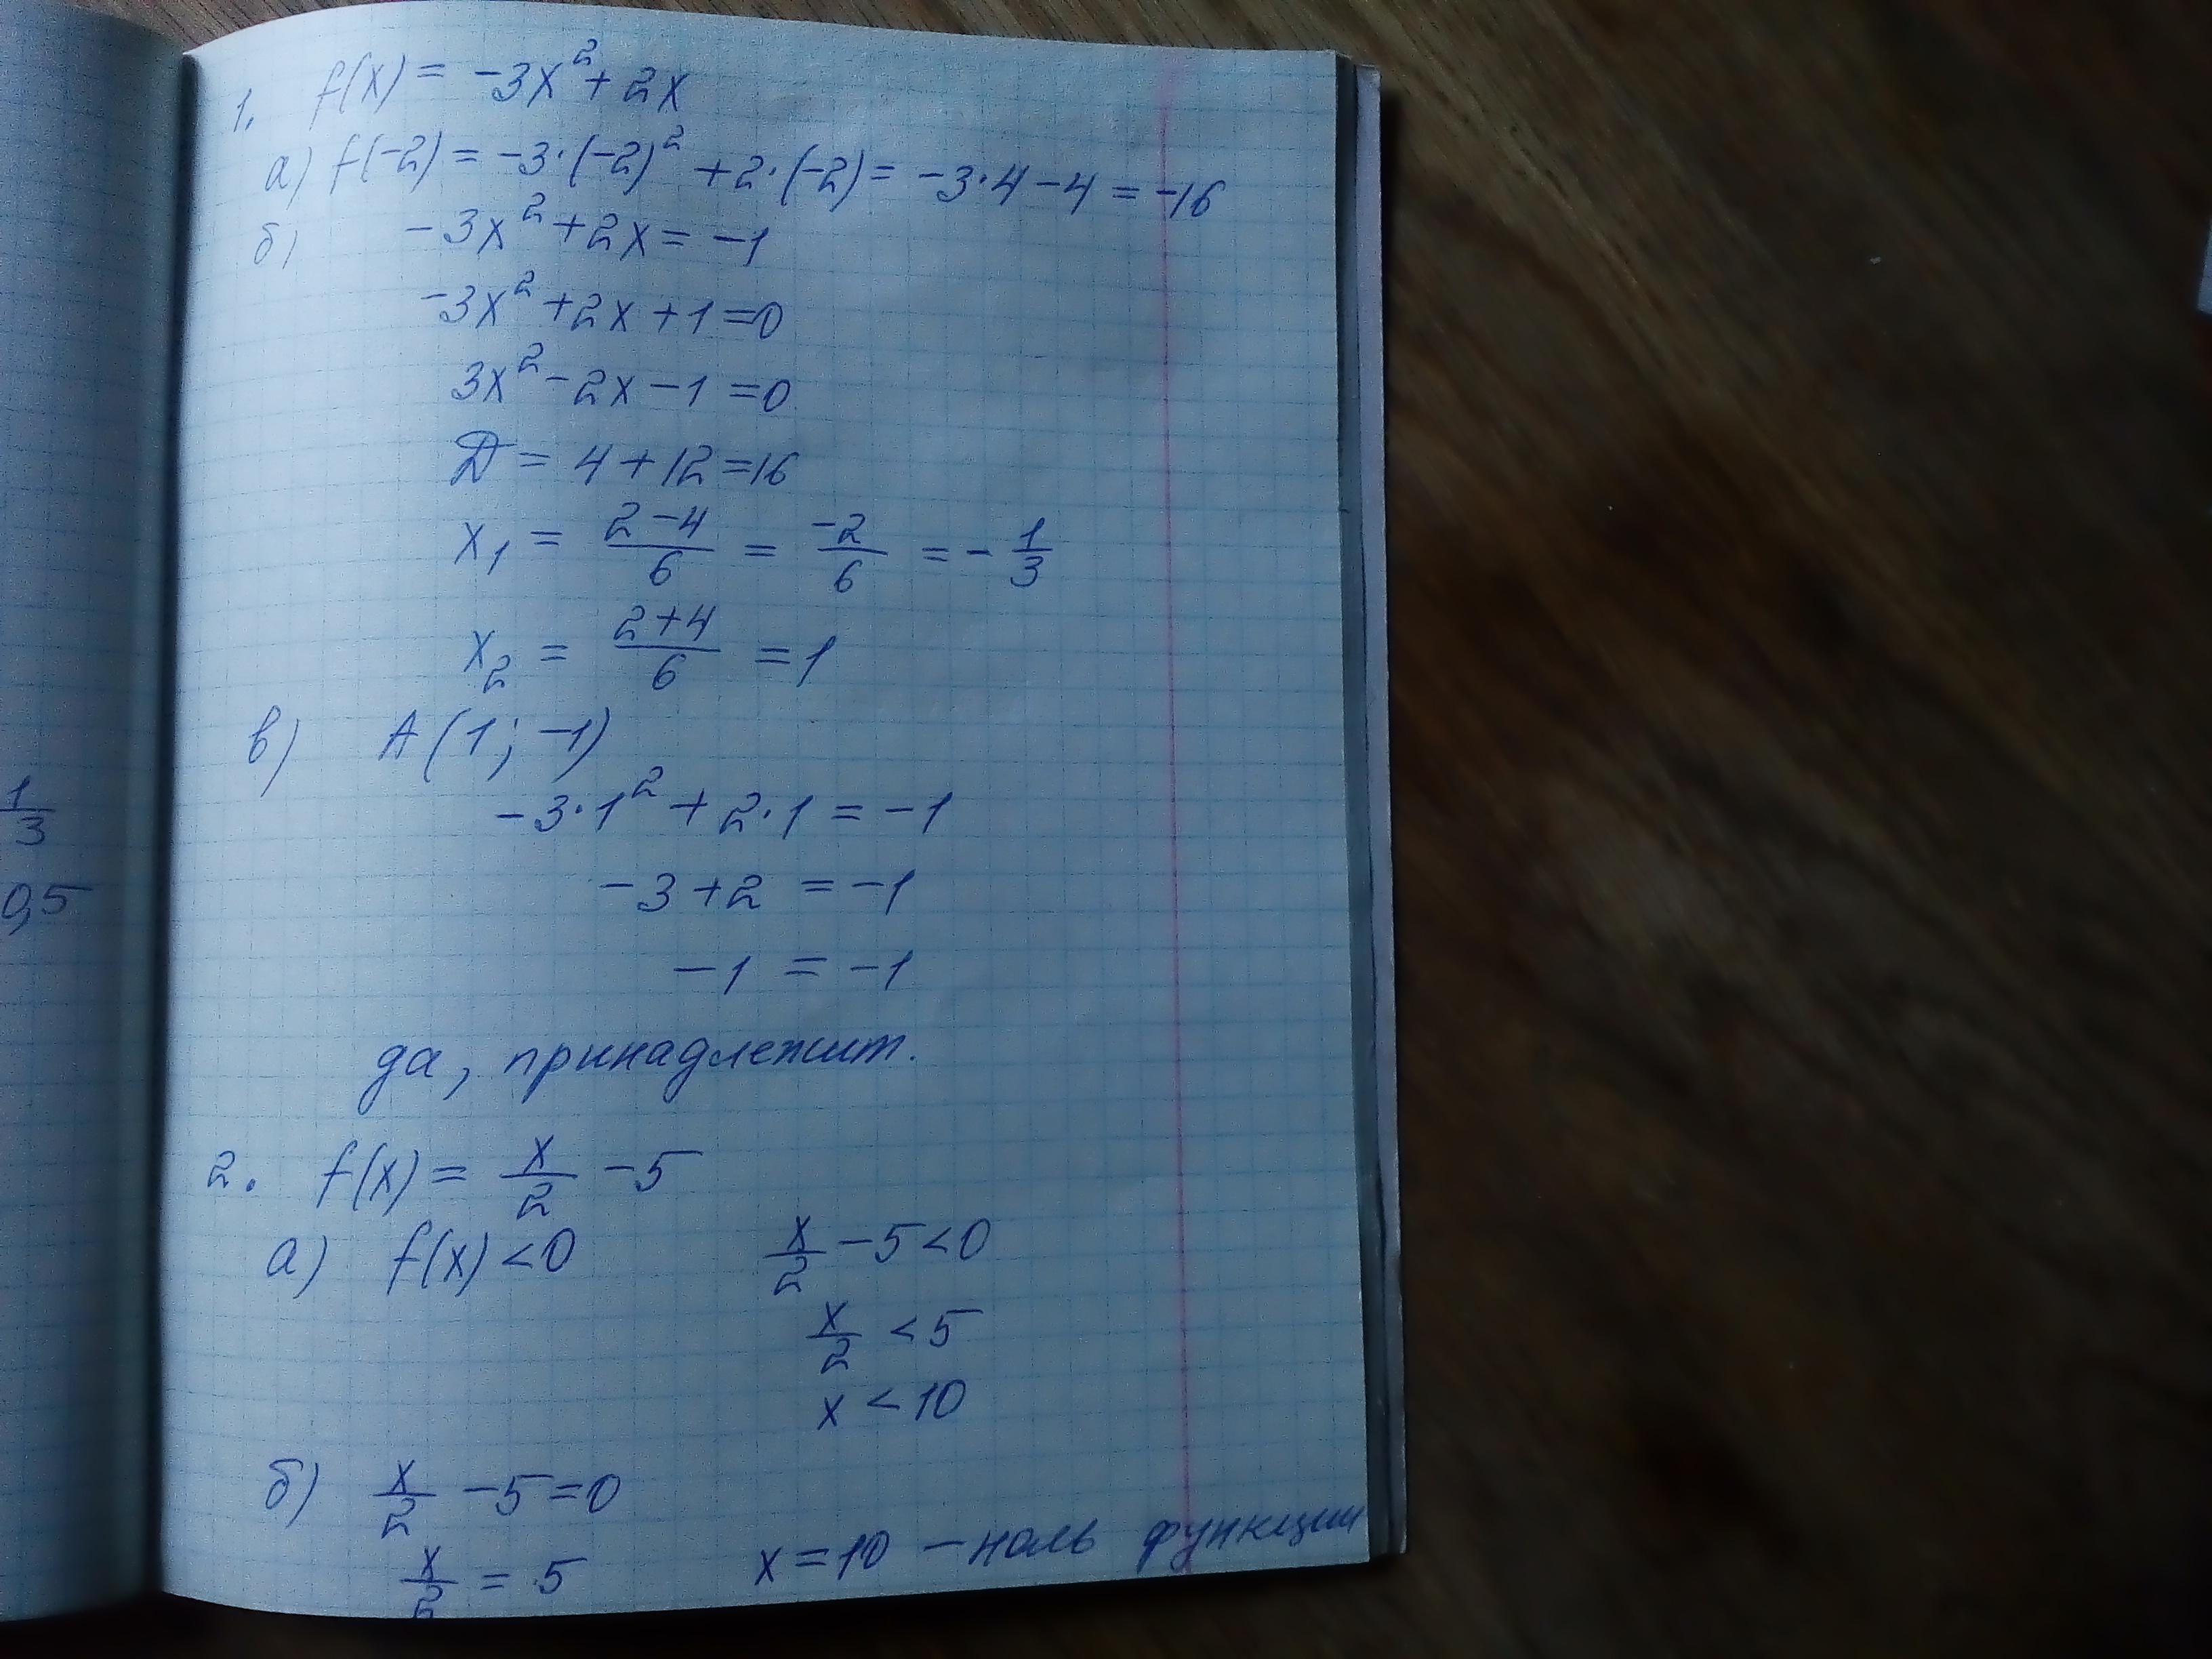 1/3
0,5
1. f(x) = -3x² + 2x
а) f(-2) = -3·(-2)² + 2·(-2) = -3·4 - 4 = -16
б) -3x² + 2x = -1
-3x² + 2x + 1 = 0
3x² - 2x - 1 = 0
D = 4 + 12 = 16
x₁ = (2-4)/6 = -2/6 = -1/3
x₂ = (2+4)/6 = 1
в) А (1; -1)
-3·1² + 2·1 = -1
-3 + 2 = -1
-1 = -1
да, принадлежит.
2. f(x) = x/2 - 5
а) f(x) < 0 x/2 - 5 < 0
x/2 < 5
x < 10
б) x/2 - 5 = 0
x/2 = 5 x = 10 - ноль функции